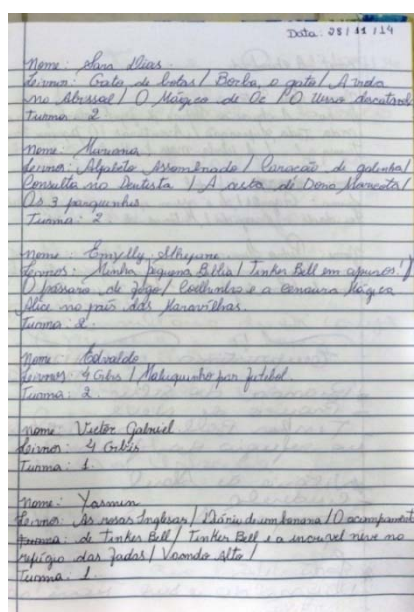 Data: 28/11/19
Nome: Sara Dias.
Livros: Gato de botas / Borba, o gato / A vida
no Abissal / O Mágico de Oz / O Urso
Turma: 2
Nome: Mariana
Livros: Alfabeto Assombrado / Coração de galinha /
Consulta no Dentista / A cesta de Dona Maricota /
Os 3 porquinhos
Turma: 2
Nome: Emylly Sthefane.
Livros: Minha pequena Bíblia / Tinker Bell em apuros /
O pássaro de fogo / Coelhinho e a cenoura Mágica
Alice no país das Maravilhas.
Turma: 2.
Nome: Edvaldo
Livros: 4 Gibis / Maluquinho por futebol.
Turma: 2
Nome: Victor Gabriel
Livros: 4 Gibis
Turma: 1.
Nome: Yasmin
Livros: As rosas Inglesas / Diário de um banana / O acampament
de Tinker Bell / Tinker Bell e a incrivel neve no
refúgio das fadas / Voando alto /
Turma: 1.